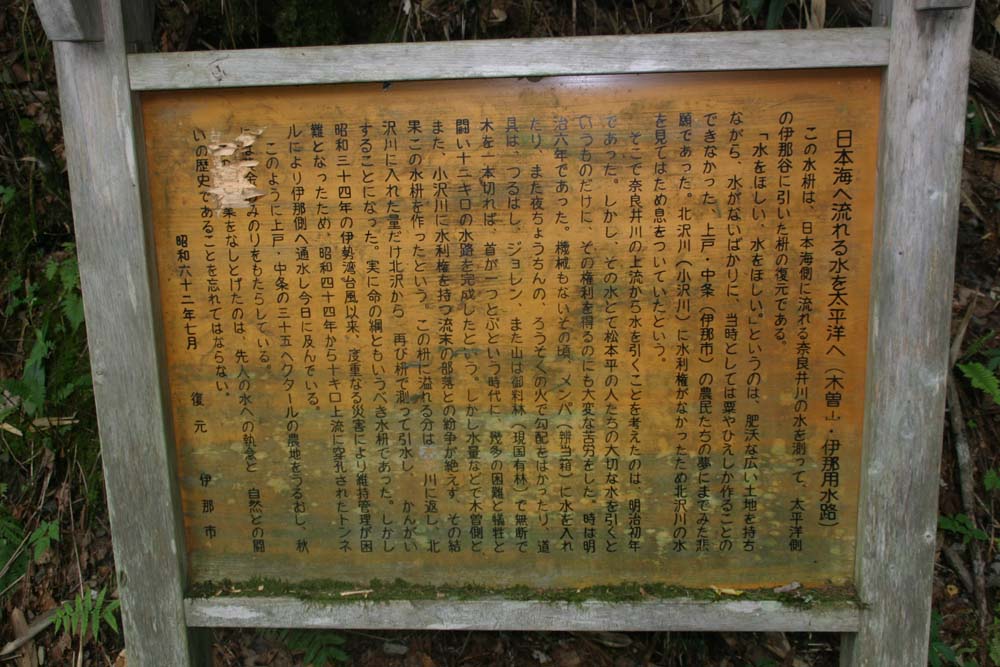 日本海へ流れる水を太平洋へ(木曽山・伊那用水路)
この水枡は、日本海側に流れる奈良井川の水を測って、太平洋側
の伊那谷に引いた枡の復元である。
「水をほしい、水をほしい。」というのは、肥沃な広い土地を持ち
ながら、水がないばかりに、当時としては粟やひえしか作ることの
できなかった、上戸・中条(伊那市)の農民たちの夢にまでみた悲
願であった。北沢川(小沢川)に水利権がなかったため北沢川の水
を見てはため息をついていたという。
そこで奈良井川の上流から水を引くことを考えたのは、明治初年
であった。しかし、その水とて松本平の人たちの大切な水を引くと
いうものだけに、その権利を得るのにも大変な苦労をした。時は明
治六年であった。機械もないその頃、メンパ(弁当箱)に水を入れ
たり、また夜ぢょうちんの、ろうそくの火で勾配をはかったり、道
具は、つるはし、ジョレン、また山は御料林(現国有林)で無断で
木を一本切れば、首が一つとぶという時代に、幾多の困難と犠牲と
闘い十二キロの水路を完成したという。しかし水量などで木曽側と
また、小沢川に水利権を持つ流末の部落との紛争が絶えず、その結
果この水枡を作ったという。この枡に溢れる分は、川に返し、北
沢川に入れた量だけ北沢から、再び枡で測って引水し、かんがい
することになった。実に命の綱ともいうべき水枡であった。しかし
昭和三十四年の伊勢湾台風以来、度重なる災害により維持管理が困
難となったため、昭和四十四年から十キロ上流に穿孔されたトンネ
ルにより伊那側へ通水し今日に及んでいる。
このように上戸・中条の三十五ヘクタールの農地をうるおし、秋
に みのりをもたらしている。
業をなしとげたのは、先人の水への執念と、自然との闘
いの歴史であることを忘れてはならない。
昭和六十二年七月 復元 伊那市